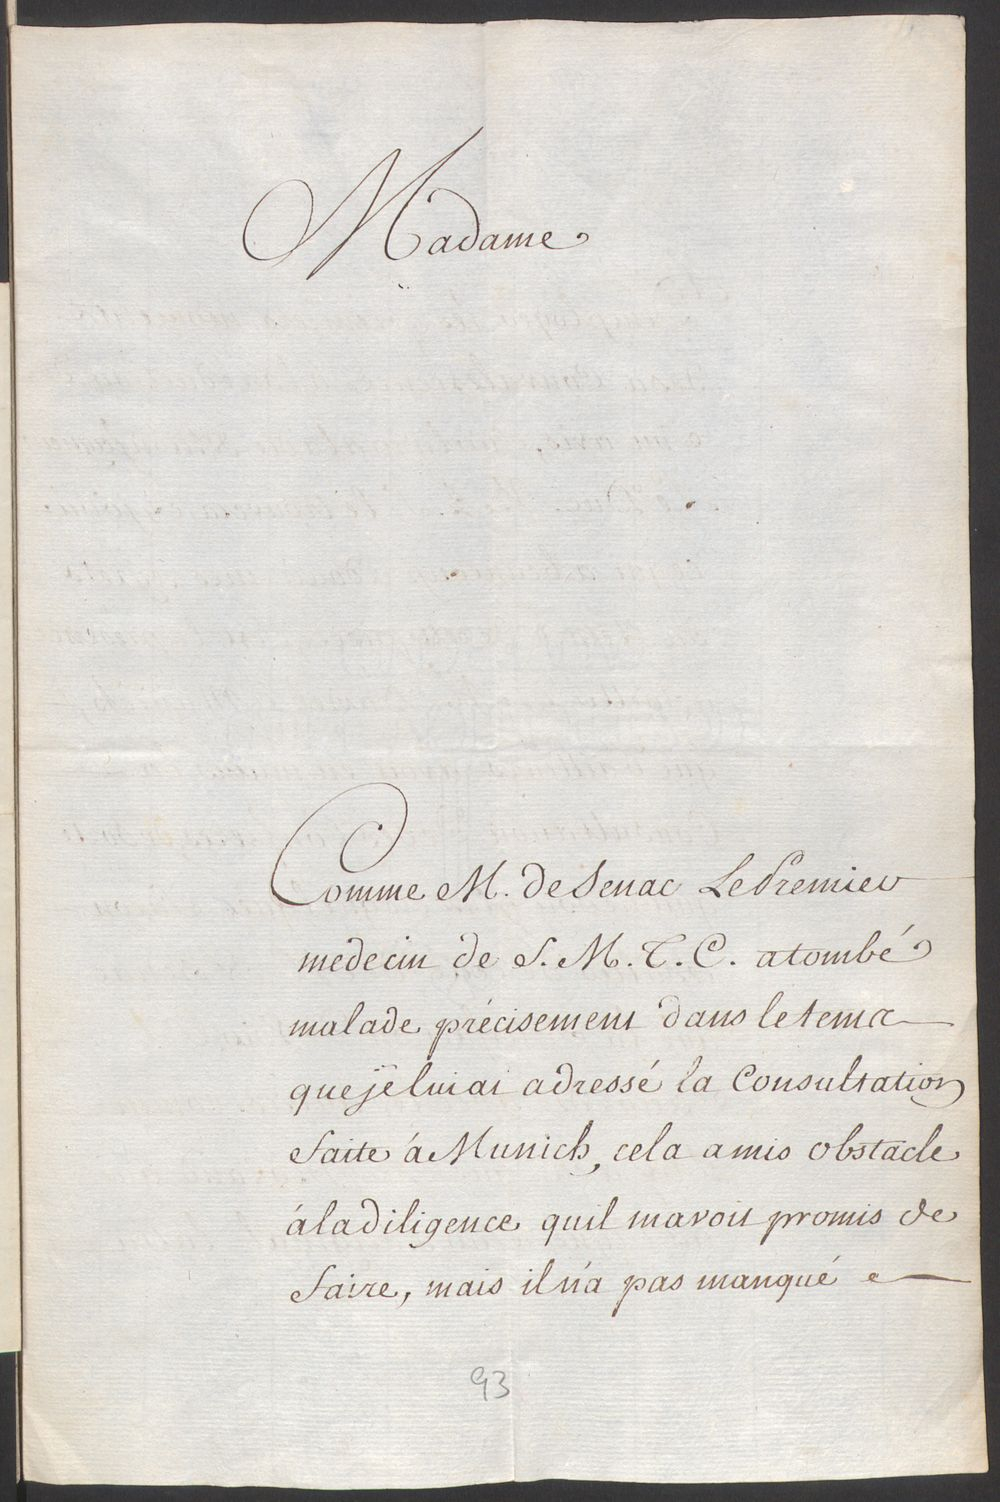 Madame
Comme M. de Senac Le Premier
medecin de S. M. T. C. a tombé
malade précisement dans le tems
que je lui ai adressé la Consultation
faite à Munich, cela a mis obstacle
à la diligence quil mavoit promis de
faire, mais il n'a pas manqué
93